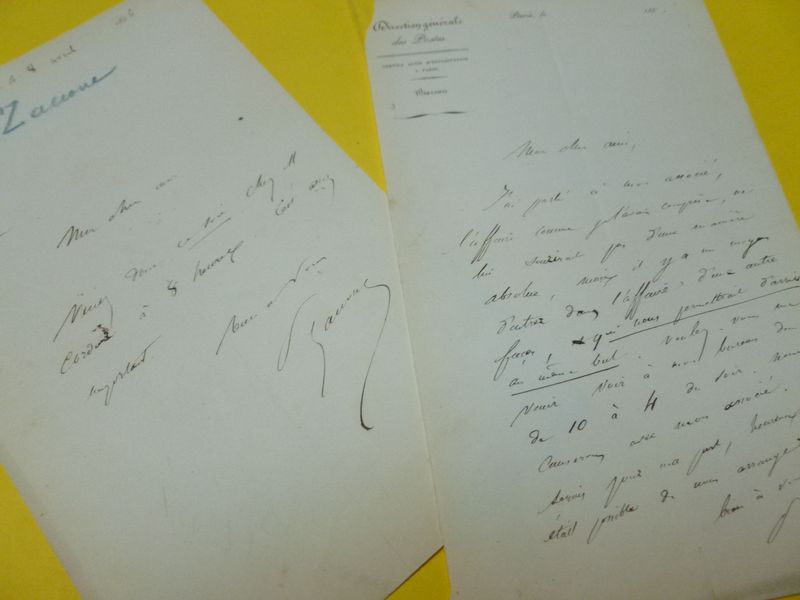 à 8 avril
Zaccone
Mon cher ami
Venez donc ce soir chez M
à 8 heures. C'est assez
important
bien à vous
Zaccone
Direction générale
des Postes
Paris, le 185
Bureau
Mon cher ami,
J'ai parlé à mon associé,
l'affaire comme je l'avais comprise, ne
lui sourirait pas d'une manière
absolue, mais il y a un moyen
d'entrer dans l'affaire d'une autre
façon, qui nous permettrait d'arriver
au même but. Voulez-vous me
venir voir à mon bureau de
de 10 à 4 du soir. nous
causerons avec mon associé.
serais pour ma part, heureux
était possible de nous arranger
bien à v